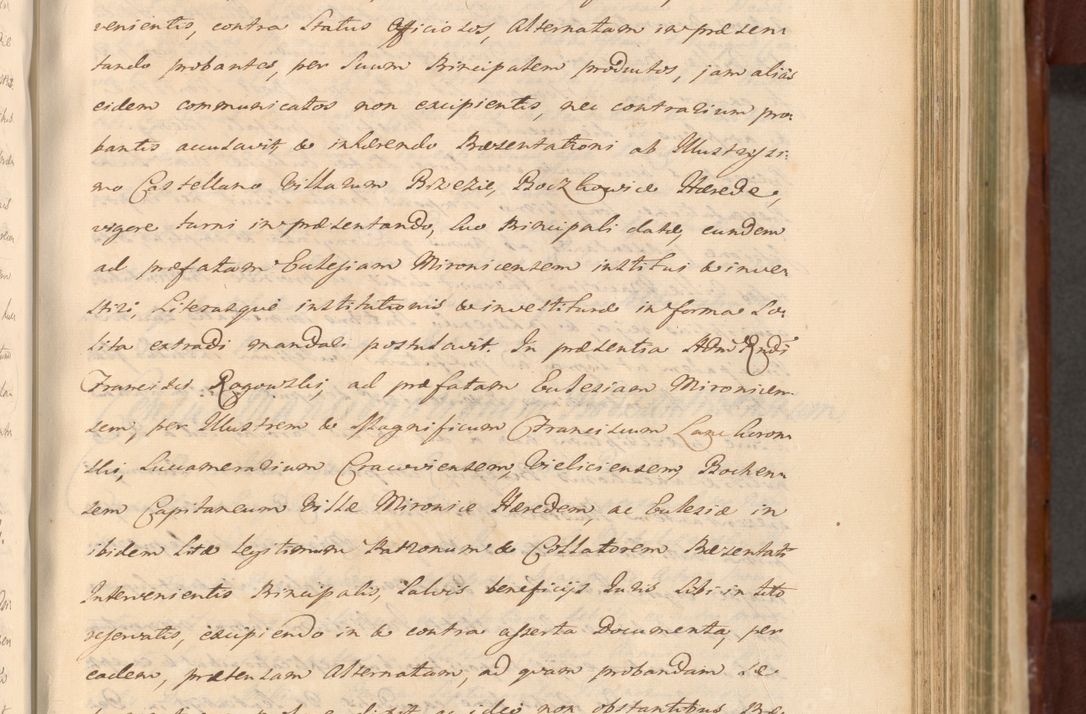 venientis, contra Status Officiosos, Alternatam in præsen:
tando probantes, per Suum Principalem productos, jam alias
eidem communicatos non excipientis, nec contrarium pro:
bantis accusavit & inhærendo Præsentationi ab Illustrissi:
mo Castellano Villarum Brzezie, Boczkowice Hærede,
vigore turni in præsentando, suo Principali datæ, eundem
ad præfatam Ecclesiam Mironicensem institui & inve:
stiri, Literasque institutionis & investituræ in forma So:
lita extradi mandari postulavit. In præsentia Adm Rndi
Francisci Rogowski, ad præfatam Ecclesiam Mironicen:
sem, per Illustrem & Magnificum Franciscum Lanckoron:
ski, Succamerarium Cracoviensem, Vieliciensem, Bochen:
sem Capitaneum Villæ Mironice Hæredem, ac Ecclesiæ in
ibidem Sitæ legitimum Patronum & Collatorem Præsentati
Intervenientis Principalis, Salvis beneficijs Juris Sibi in toto
reservatis, excipiendo in & contra asserta Documenta, per
eadem, prætensam Alternatam, ad quam probandam se
ac ideo non obstantibus Præ